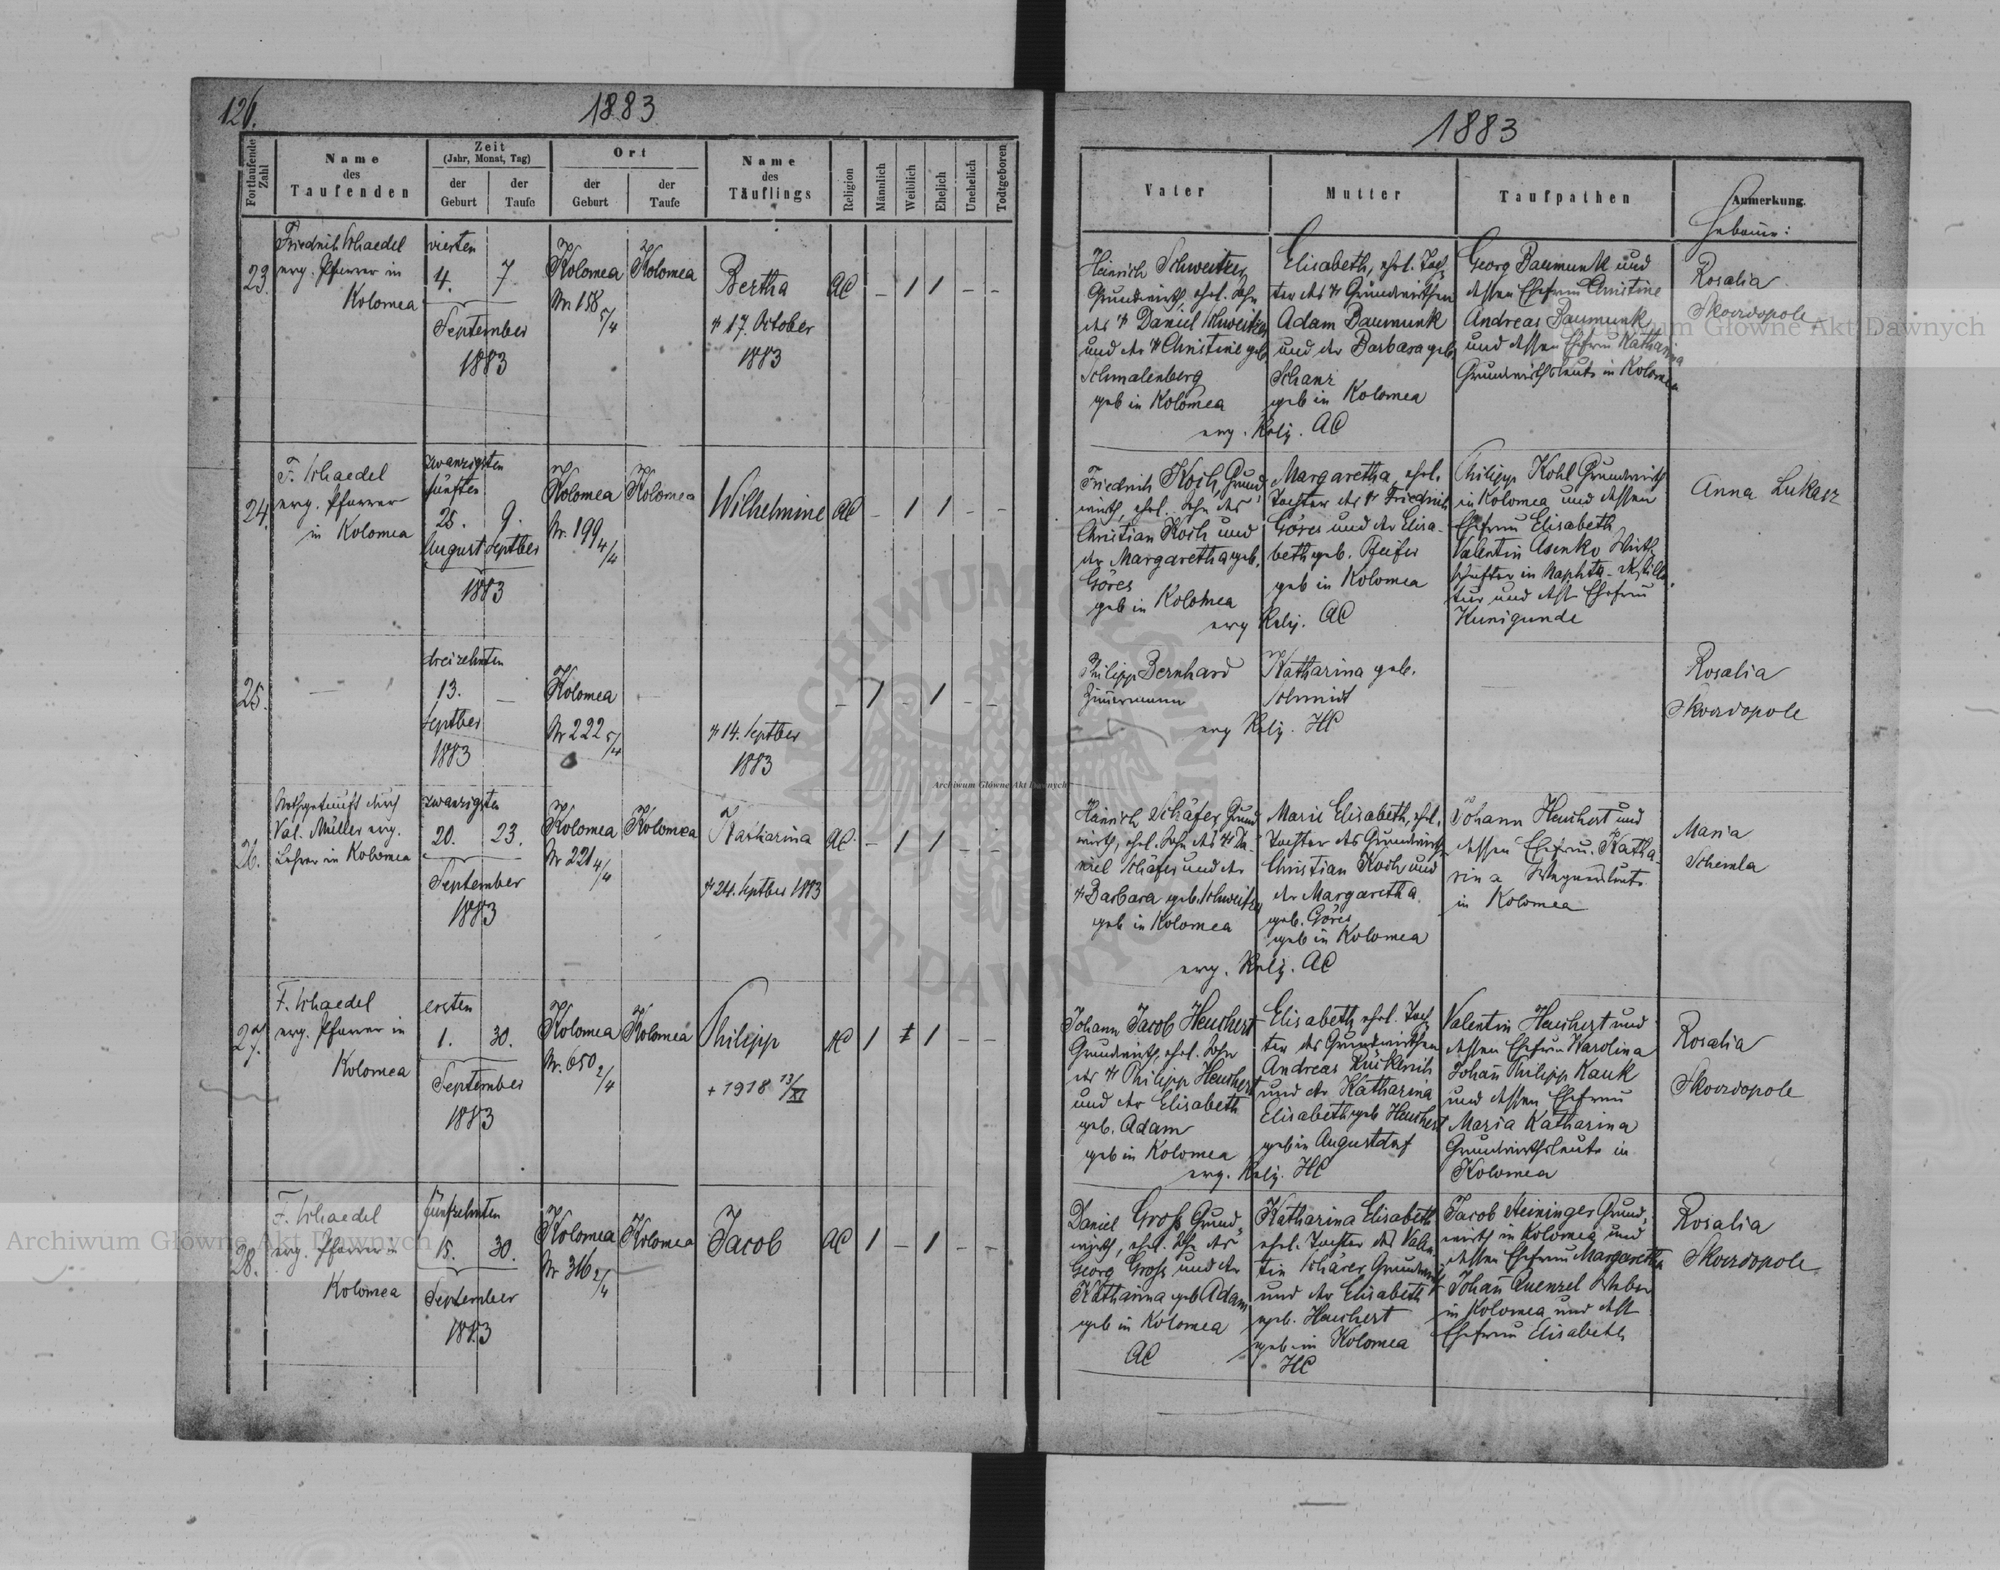 126.
1883
Fortlaufende Zahl
Name des Taufenden
Zeit (Jahr, Monat, Tag)
der Geburt
der Taufe
Ort
der Geburt
der Taufe
Name des Täuflings
Religion
Männlich
Weiblich
Ehelich
Unehelich
Todtgeboren
23.
Friedrich Schaedel
evg. Pfarrer in
Kolomea
vierten
4.
7
September
1883
Kolomea
Nr. 158 5/4
Kolomea
Bertha
† 17. October
1883
AC
– 1 1 – –
24.
F. Schaedel
evg. Pfarrer
in Kolomea
zwanzigsten
fünften
25.
9.
August
Septber
1883
Kolomea
Nr. 199 4/4
Kolomea
Wilhelmine
AC
– 1 1 – –
25.
dreizehnten
13.
–
Septber
1883
Kolomea
Nr 222 5/4
† 14. Septber
1883
– 1 – 1 – –
26.
Nothgetauft durch
Val. Müller evg.
Lehrer in Kolomea
zwanzigsten
20.
23.
September
1883
Kolomea
Nr 221 4/4
Kolomea
Katharina
† 24. Septber 1883
AC
– 1 1 – –
27.
F. Schaedel
evg. Pfarrer in
Kolomea
ersten
1.
30.
September
1883
Kolomea
Nr. 650 2/4
Kolomea
Philipp
+ 1918 13/XI
1 1 – –
28.
F. Schaedel
evg. Pfarrer in
Kolomea
fünfzehnten
15.
30.
September
1883
Kolomea
Nr 316 2/4
Kolomea
Jacob
AC
1 – 1 – –
1883
Vater
Mutter
Taufpathen
Anmerkung.
Hebamme:
Heinrich Schweitzer
Grundwirth, ehel. Sohn
des † Daniel Schweitzer
und der † Christine geb
Schmalenberg
geb in Kolomea
Elisabeth, ehel. Toch-
ter des † Grundwirthen
Adam Baumunk
und der Barbara geb.
Schanz
geb in Kolomea
evg. Relig. AC
Georg Baumunk und
dessen Ehefrau Christine
Andreas Baumunk
und dessen Ehefrau Katharina
Grundwirthsleute in Kolomea
Rosalia
Skowdopole
Friedrich Koch, Grund-
wirth, ehel. Sohn des
Christian Koch und
der Margaretha geb.
Göres
geb in Kolomea
Margaretha, ehel.
Tochter des † Friedrich
Göres und der Elisa-
beth geb. Pfeifer
geb in Kolomea
evg Relig. AC
Philipp Kohl Grundwirth
in Kolomea und dessen
Ehefrau Elisabeth
Valentin Asenko Wirth-
schafter in Naphta-Destilla-
tur und dess. Ehefrau
Kunigunde
Anna Lukasz
Philipp Bernhard
Zimmermann
Katharina geb.
Schmidt
evg Relig. HC
Rosalia
Skowdopole
Heinrich Schäfer, Grund-
wirth, ehel. Sohn des † Da-
niel Schäfer und der
† Barbara geb. Schweitzer
geb in Kolomea
Marie Elisabeth, ehel.
Tochter des Grundwirth
Christian Koch und
der Margaretha
geb. Göres
geb in Kolomea
evg. Relig. AC
Johann Heuchert und
dessen Ehefrau Katha-
rina Wagnersleute
in Kolomea
Maria
Johann Jacob Heuchert
Grundwirth, ehel. Sohn
des † Philipp Heuchert
und der Elisabeth
geb. Adam
geb in Kolomea
Elisabeth ehel. Toch-
ter des Grundwirthen
Andreas
und der Katharina
Elisabeth geb Heuchert
geb in Augustdorf
evg. Relig. HC
Valentin Heuchert und
dessen Ehefrau Karolina
Johann Philipp Kauk
und dessen Ehefrau
Maria Katharina
Grundwirthsleute in
Kolomea
Rosalia
Skowdopole
Daniel Groß Grund-
wirth, ehel. Sohn des
Georg Groß und der
Katharina geb Adam
geb in Kolomea
AC
Katharina Elisabeth
ehel. Tochter des Valen-
tin Schärer Grundwirth
und der Elisabeth
geb. Heuchert
geb in Kolomea
HC
Jacob Steininger Grund-
wirth in Kolomea und
dessen Ehefrau Margaretha
Johann Quenzel Weber
in Kolomea und dess.
Ehefrau Elisabeth
Rosalia
Skowdopole
Archiwum Główne Akt Dawnych
Archiwum Główne Akt Dawnych
Archiwum Główne Akt Dawnych
ARCHIWUM GŁÓWNE AKT DAWNYCH